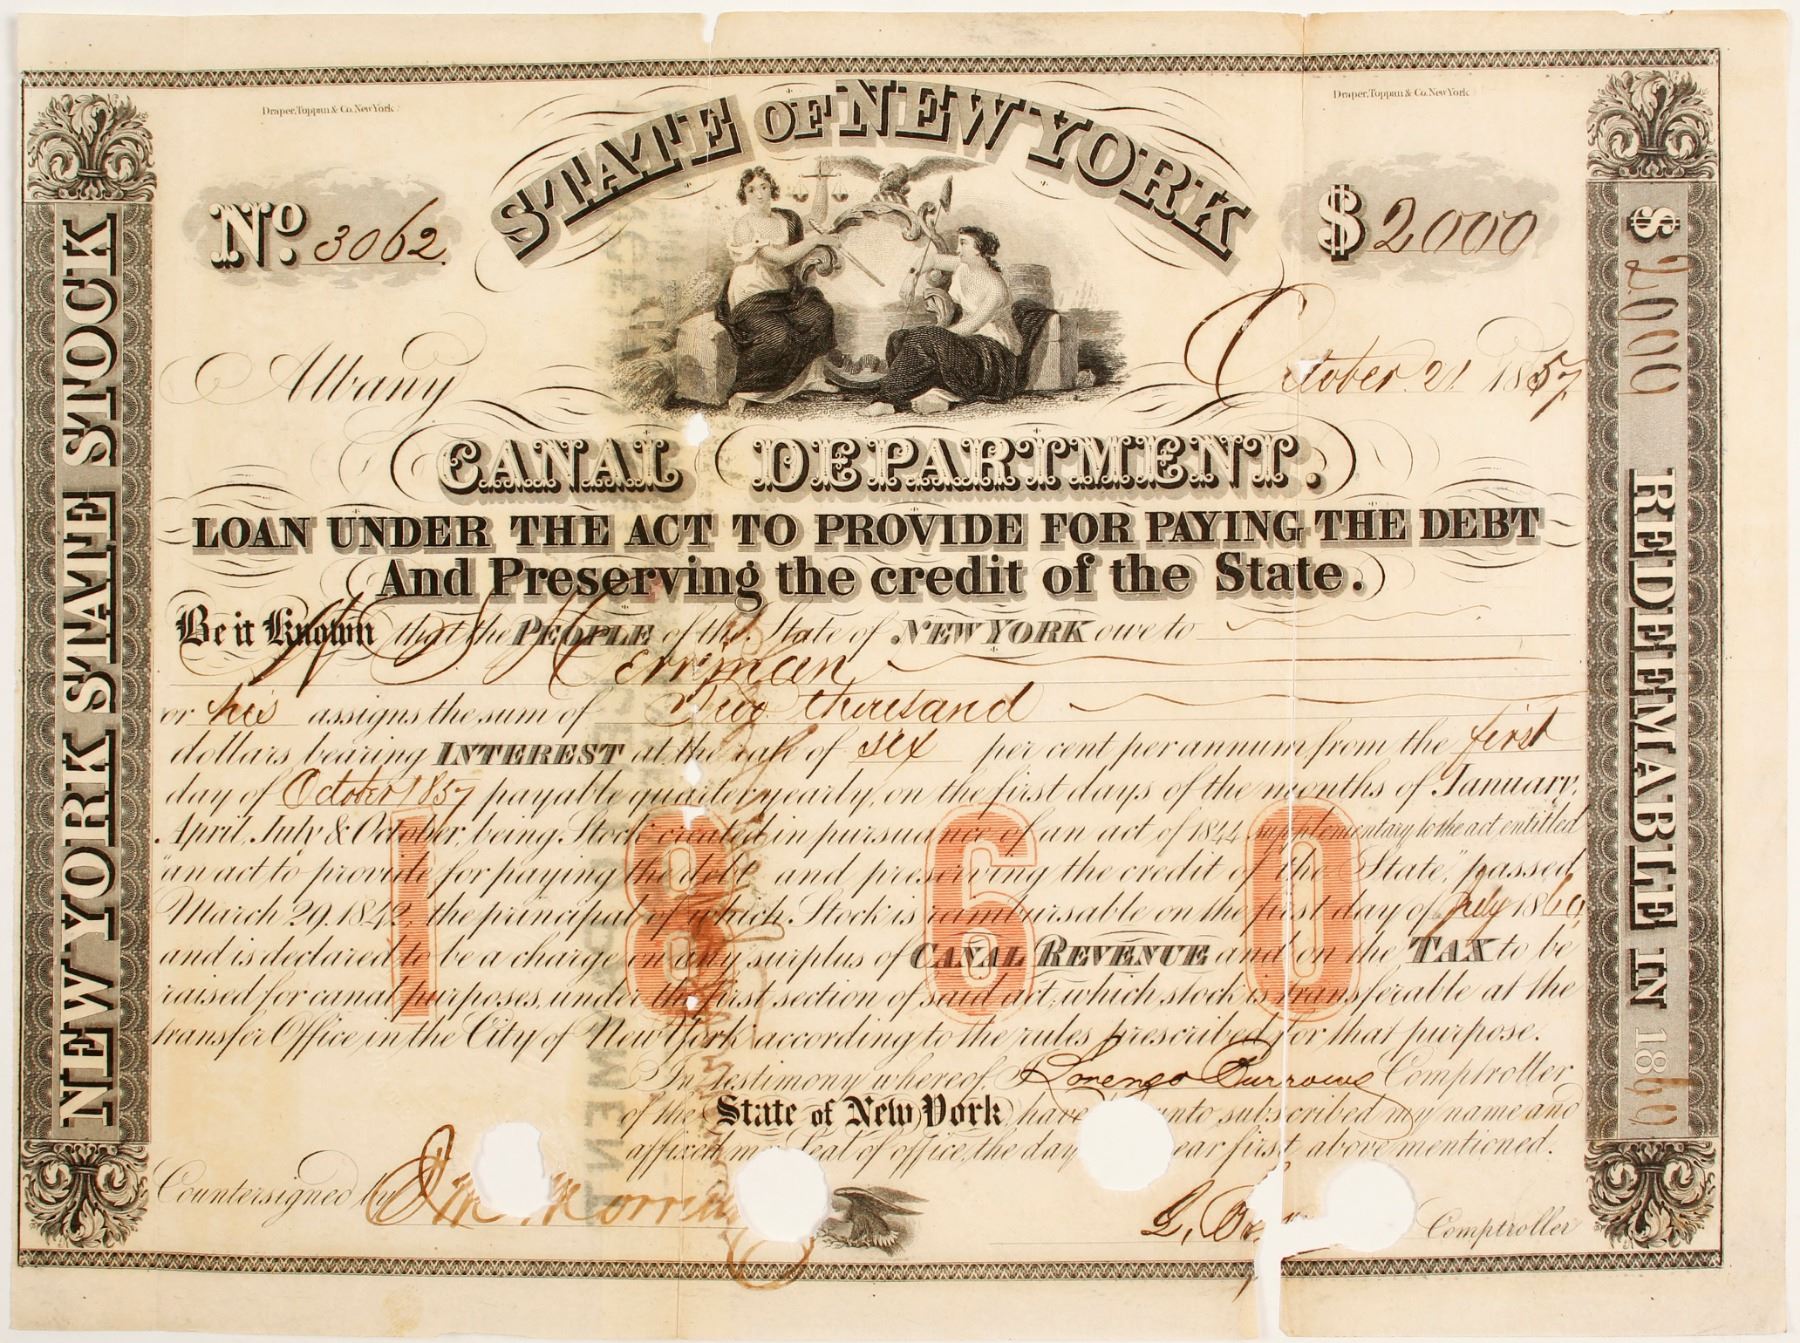 Draper, Toppan & Co. New York
Draper, Toppan & Co. New York
STATE OF NEW YORK
No. 3062
$2000
Albany October 21 1857
CANAL DEPARTMENT.
LOAN UNDER THE ACT TO PROVIDE FOR PAYING THE DEBT
And Preserving the credit of the State.
Be it Known that the PEOPLE of the State of NEW YORK owe to
Herriman
or his assigns the sum of Two thousand
dollars bearing INTEREST at the rate of six per cent per annum from the first
day of October 1857 payable quarter yearly, on the first days of the months of January,
April, July & October, being Stock created in pursuance of an act of 1844 supplementary to the act entitled
"an act to provide for paying the debt and preserving the credit of the State," passed
March 29. 1842, the principal of which Stock is reimbursable on the first day of July 1860
and is declared to be a charge on any surplus of CANAL REVENUE and on the TAX to be
raised for canal purposes, under the first section of said act; which stock is transferable at the
transfer Office in the City of New York according to the rules prescribed for that purpose.
1860
In testimony whereof, I Lorenzo Burrows Comptroller
of the State of New York have unto subscribed my name and
affixed my Seal of office, the day ear first above mentioned.
Countersigned by
L. Comptroller
NEW YORK STATE STOCK
$2000 REDEEMABLE IN 1860